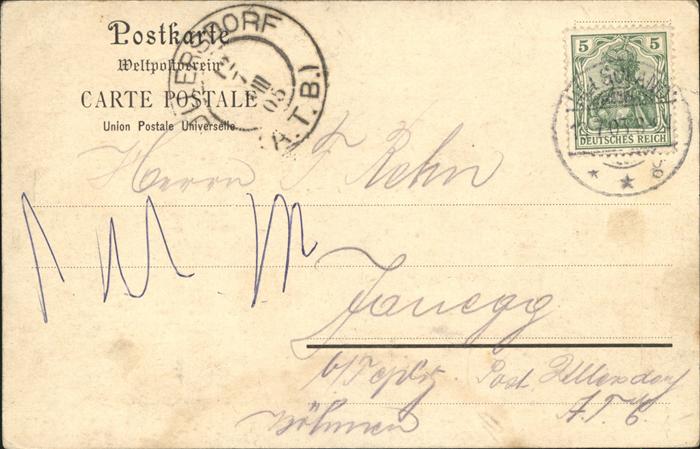 Postkarte
Weltpostverein
CARTE POSTALE
Union Postale Universelle.
ULLERSDORF
VIII
05
(A.T.B.)
5 5
DEUTSCHES REICH
Herrn F. Rehn
Janegg
b/Teplitz Post Ullersdorf
A.T.E.
Böhmen